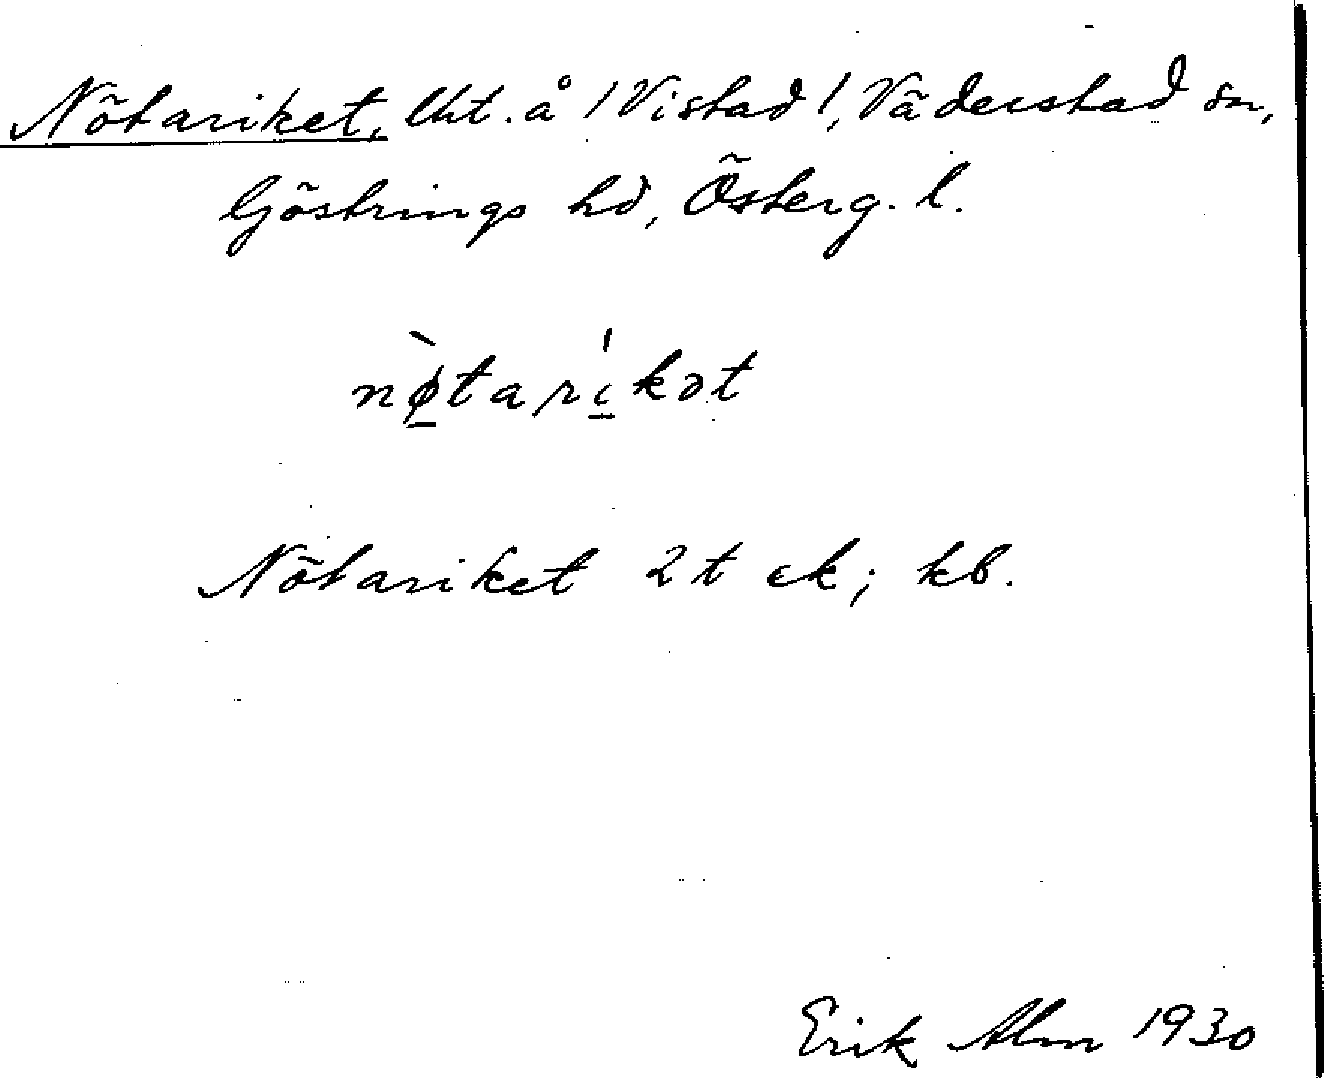 Nötariket, Lht. å /Vistad/, Väderstad sn,
Göstrings hd, Österg. l.
nø̠̀tarí̠kət
Nötariket 2 t ek; kb.
Erik Alm 1930